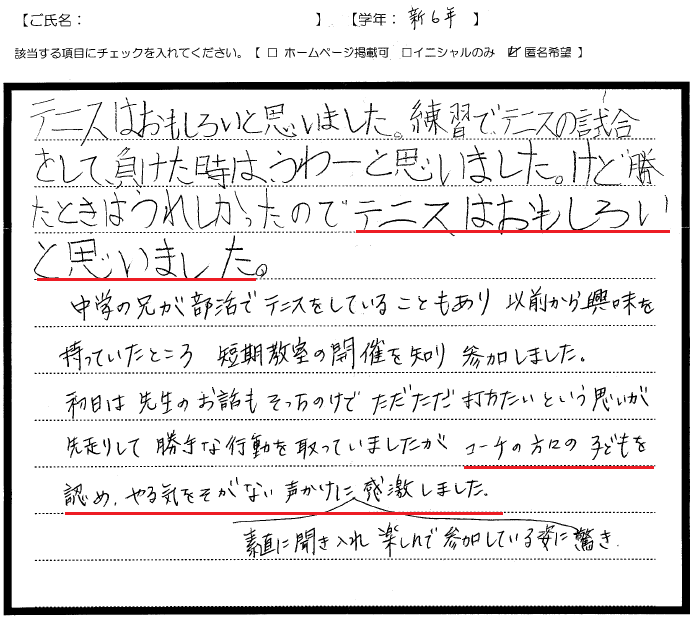 【ご氏名： 】 【学年： 新6年 】
該当する項目にチェックを入れてください。【 □ ホームページ掲載可 □イニシャルのみ ☑ 匿名希望 】
テニスはおもしろいと思いました。練習で、テニスの試合
をして、負けた時は、うわーと思いました。けど勝
たときはうれしかったのでテニスはおもしろい
と思いました。
中学の兄が部活でテニスをしていることもあり 以前から興味を
持っていたところ 短期教室の開催を知り 参加しました。
初日は 先生のお話も そっちのけで ただただ 打ちたいという思いが
先走りして 勝手な行動を取っていましたが コーチの方々の 子どもを
認め、やる気をそがない 声かけに 感激しました。
素直に聞き入れ 楽しんで 参加している姿に 驚き